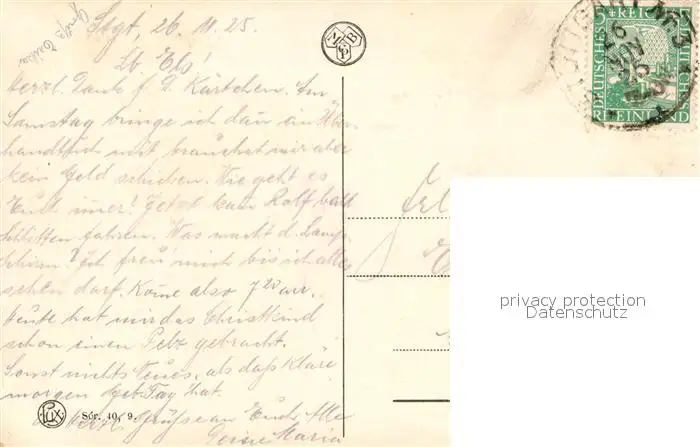 Stgt, 26. 11. 25.
Lb. Els!
Herzl. Dank f. D. Kärtchen. Am
Samstag bringe ich dann ein Über
handtuch mit brauchst mir aber
kein Geld schicken. Wie geht es
Euch imer! Jetzt kann Rolf bald
Schlitten fahren. Was macht d. Lamp
schirm? Ich freu mich bis ich alles
sehen darf. Kome also 7 20 arr.
Heute hat mir das Christkind
schon einen Pelz gebracht.
Sonst nichts Neues, als daß Kläre
morgen Geb. Tag hat.
Herzl. Grüße an Euch Alle
Deine Maria
Lux
Sér. 40, 9.
M B
STUTTGART
DEUTSCHES REICH
RHEINLAND
privacy protection
Datenschutz